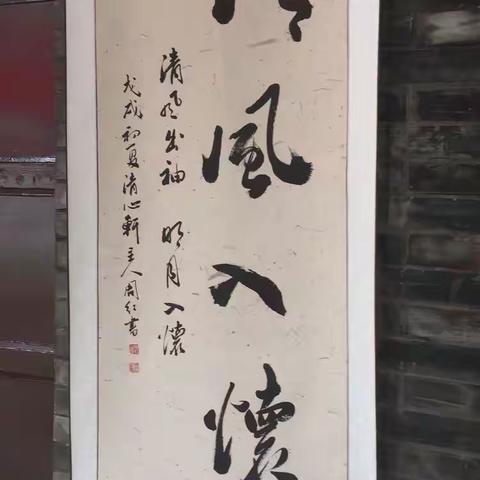 風入懷
清風出袖 明月入懷
戊戌初夏清心軒主人周红書